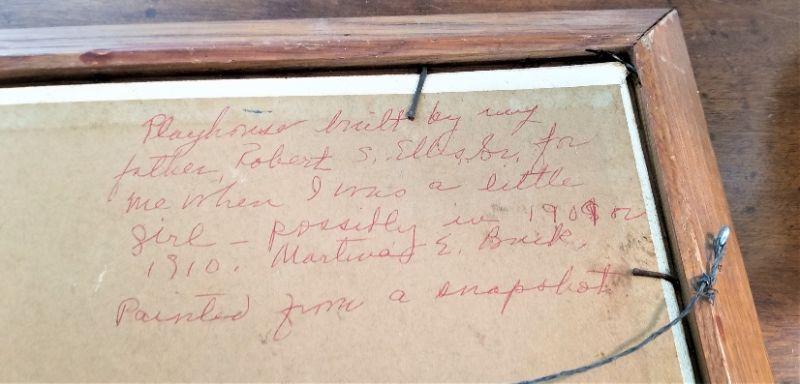 Playhouse built by my
father, Robert S. Ellis, Sr., for
me when I was a little
girl – possibly in 1909 or
1910. E. Buik.
Painted from a snapshot